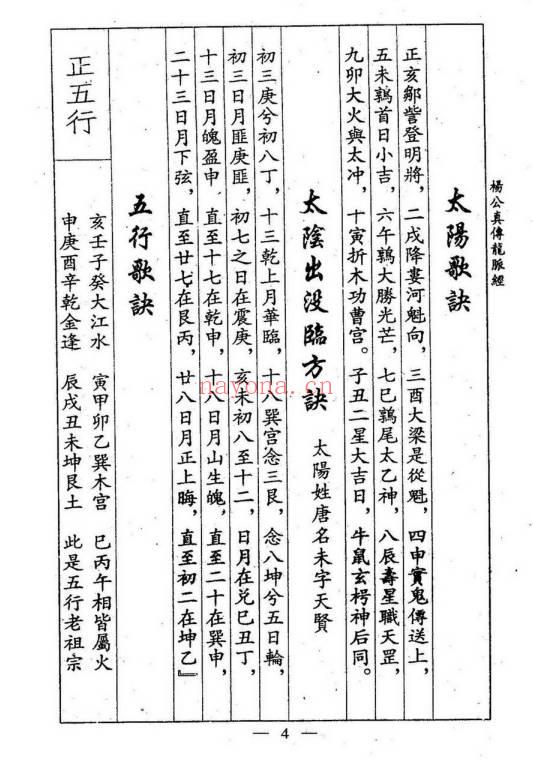 楊公真傳龍脈經
太陽歌訣
正亥鄒訾登明將，二戌降婁河魁向，三酉大梁是從魁，四申實鬼傳送上，
五未鶉首日小吉，六午鶉大勝光芒，七巳鶉尾太乙神，八辰壽星職天罡，
九卯大火與太冲，十寅折木功曹宫。子丑二星大吉日，牛鼠玄枵神后同。
太陰出没臨方訣 太陽姓唐名未字天賢
初三庚兮初八丁，十三乾上月華臨，十八巽宫念三艮，念八坤兮五日輪，
初三日月匪庚匪，初七之日在震庚，亥未初八至十二，日月在兑巳丑丁，
十三日月魄盈甲，直至十七在乾申，十八日月山生魄，直至二十在巽申，
二十三日月下弦，直至廿七在艮丙，廿八日月正上晦，直至初二在坤乙』
五行歌訣
正五行
亥壬子癸大江水 寅甲卯乙巽木宫 巳丙午相皆屬火
申庚酉辛乾金逢 辰戌丑未坤艮土 此是五行老祖宗
nayona.cn
— 4 —